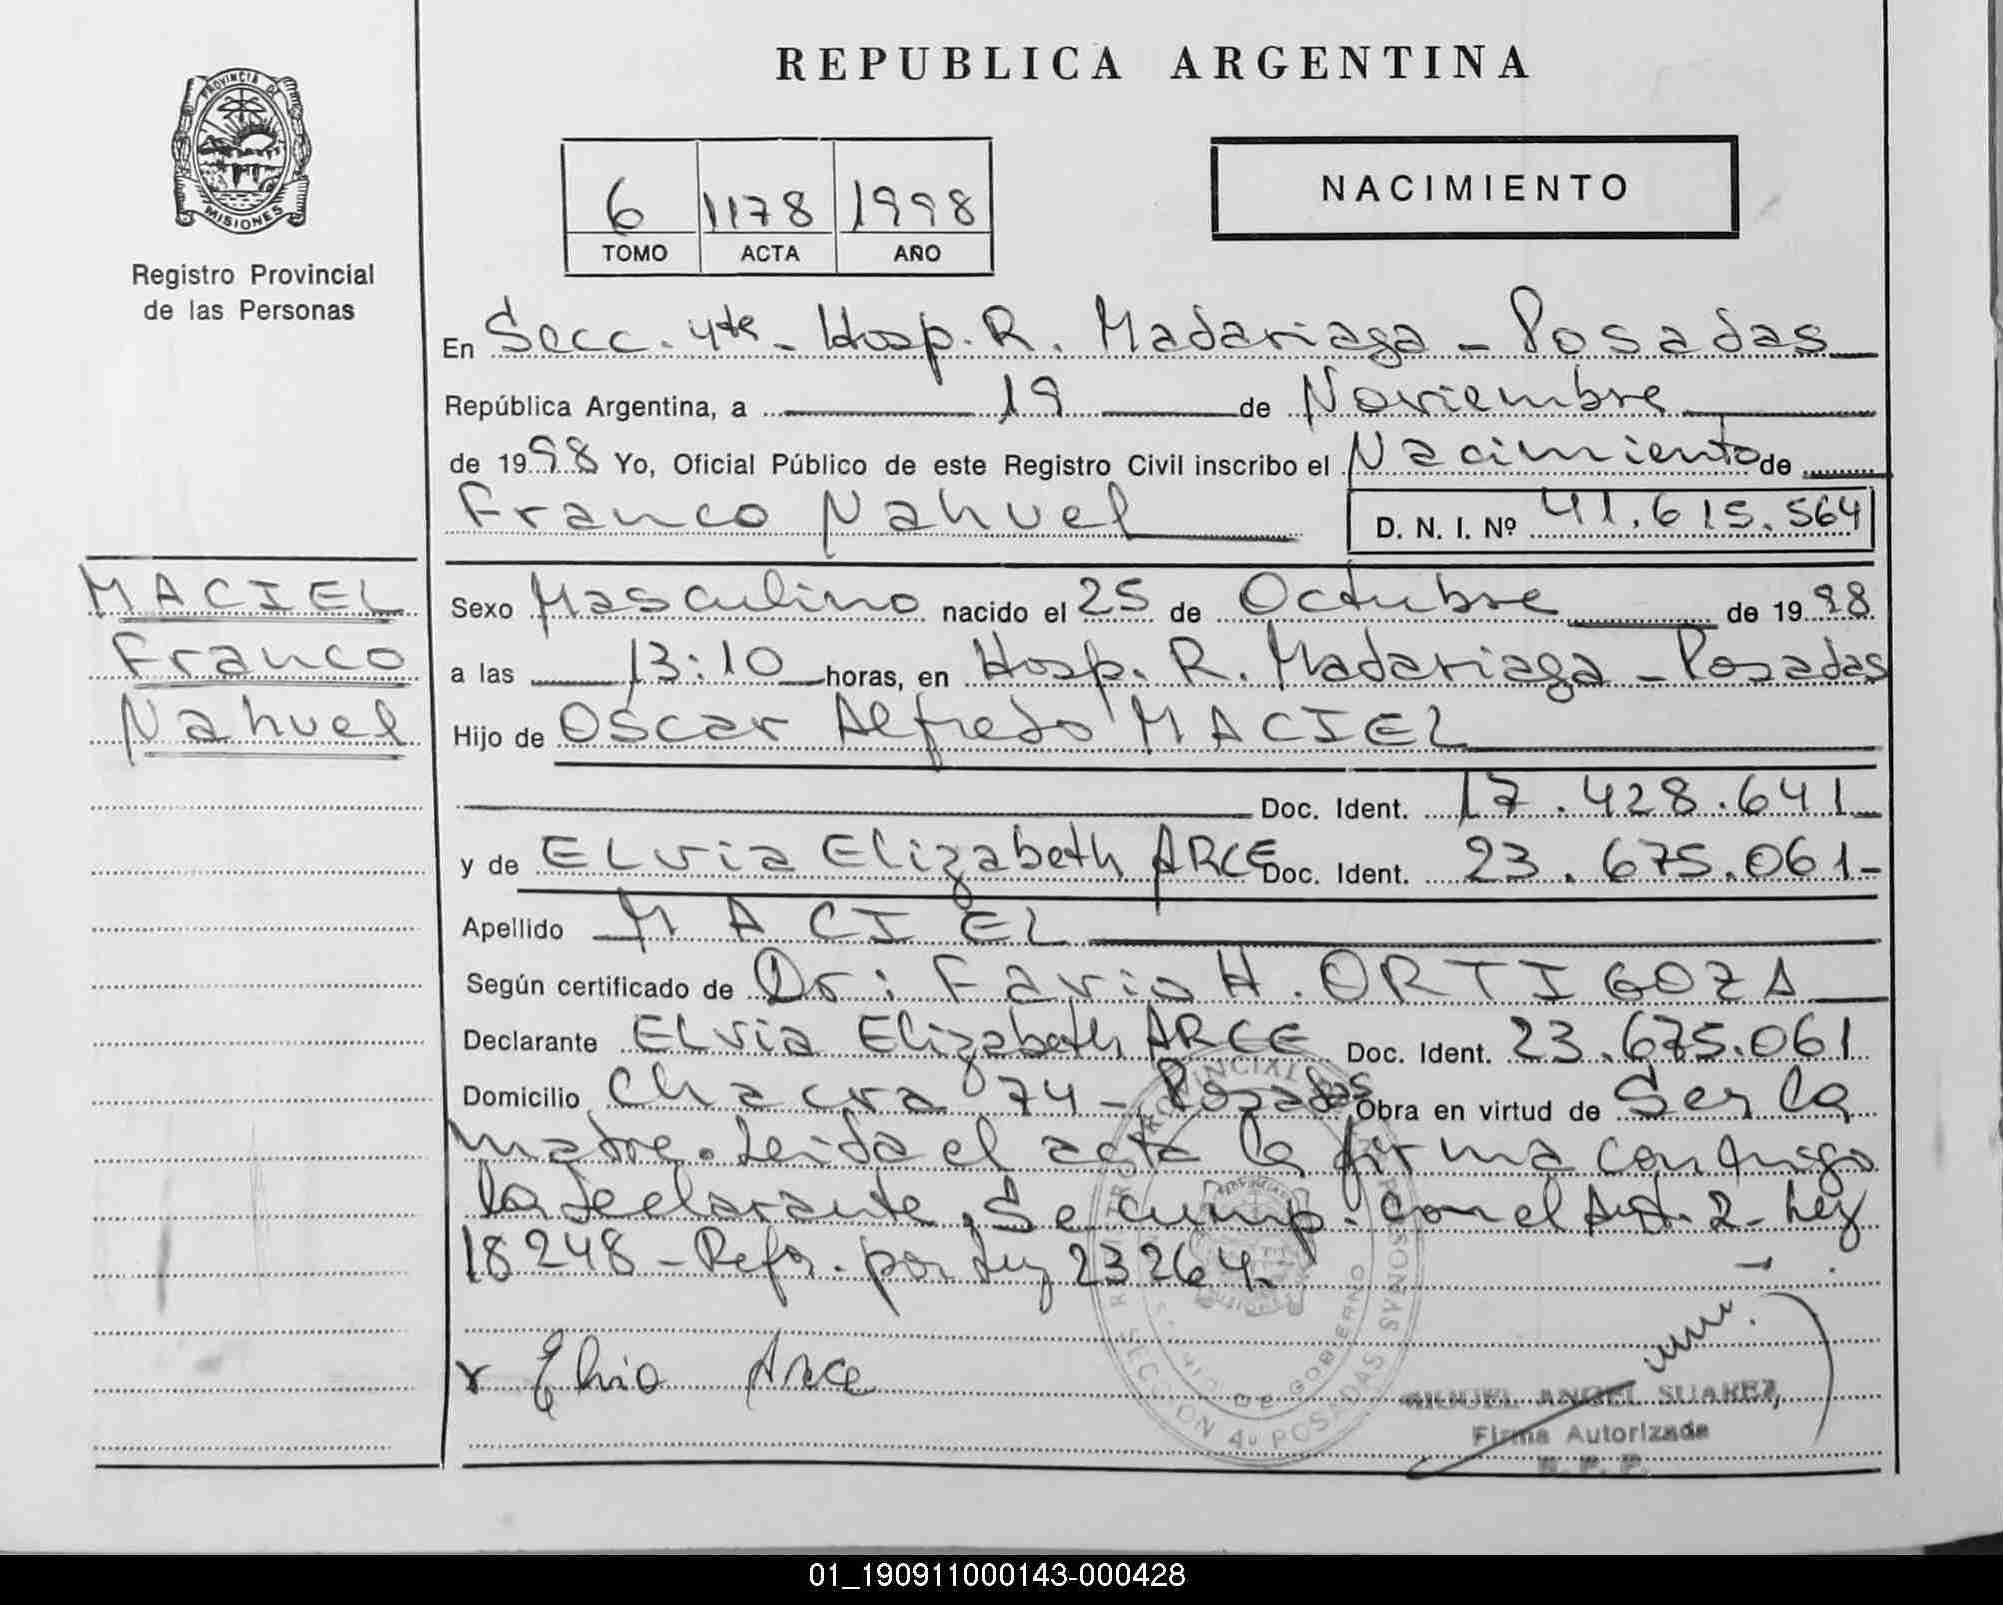 REPUBLICA ARGENTINA
PROVINCIA DE
MISIONES
Registro Provincial
de las Personas
6 1178 1998
TOMO ACTA AÑO
NACIMIENTO
En Secc. 4ta - Hosp. R. Madariaga - Posadas
República Argentina, a 19 de Noviembre
de 1998 Yo, Oficial Público de este Registro Civil inscribo el Nacimiento de
Franco Nahuel D. N. I. Nº 41.615.564
MACIEL
Franco
Nahuel
Sexo Masculino nacido el 25 de Octubre de 1998
a las 13:10 horas, en Hosp. R. Madariaga - Posadas
Hijo de Oscar Alfredo MACIEL
Doc. Ident. 17.428.641
y de ELvia Elizabeth ARCE Doc. Ident. 23.675.061-
Apellido MACIEL
Según certificado de Dr: Favio H. ORTIGOZA
Declarante ELvia Elizabeth ARCE Doc. Ident. 23.675.061
Domicilio Chacra 74 - Posadas Obra en virtud de Ser la
madre. Leida el acta la firma conmigo
la declarante. Se cump. con el Art. 2 - Ley
18248 - Refr. por Ley 23264.
Elvia Arce
MIGUEL ANGEL SUAREZ
Firma Autorizada
R. P. P.
SECCION 4º POSADAS
01_190911000143-000428